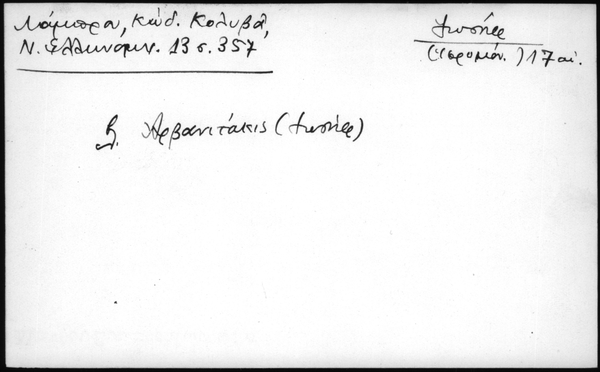 Λάμπρου, Κώδ. Κολυβᾶ,
Ν. Ἑλληνομν. 13 σ. 357
Ἰωσήφ
(Ἱερομόν.) 17 αἰ.
βλ. Ἀρβανιτάκις (Ἰωσήφ)